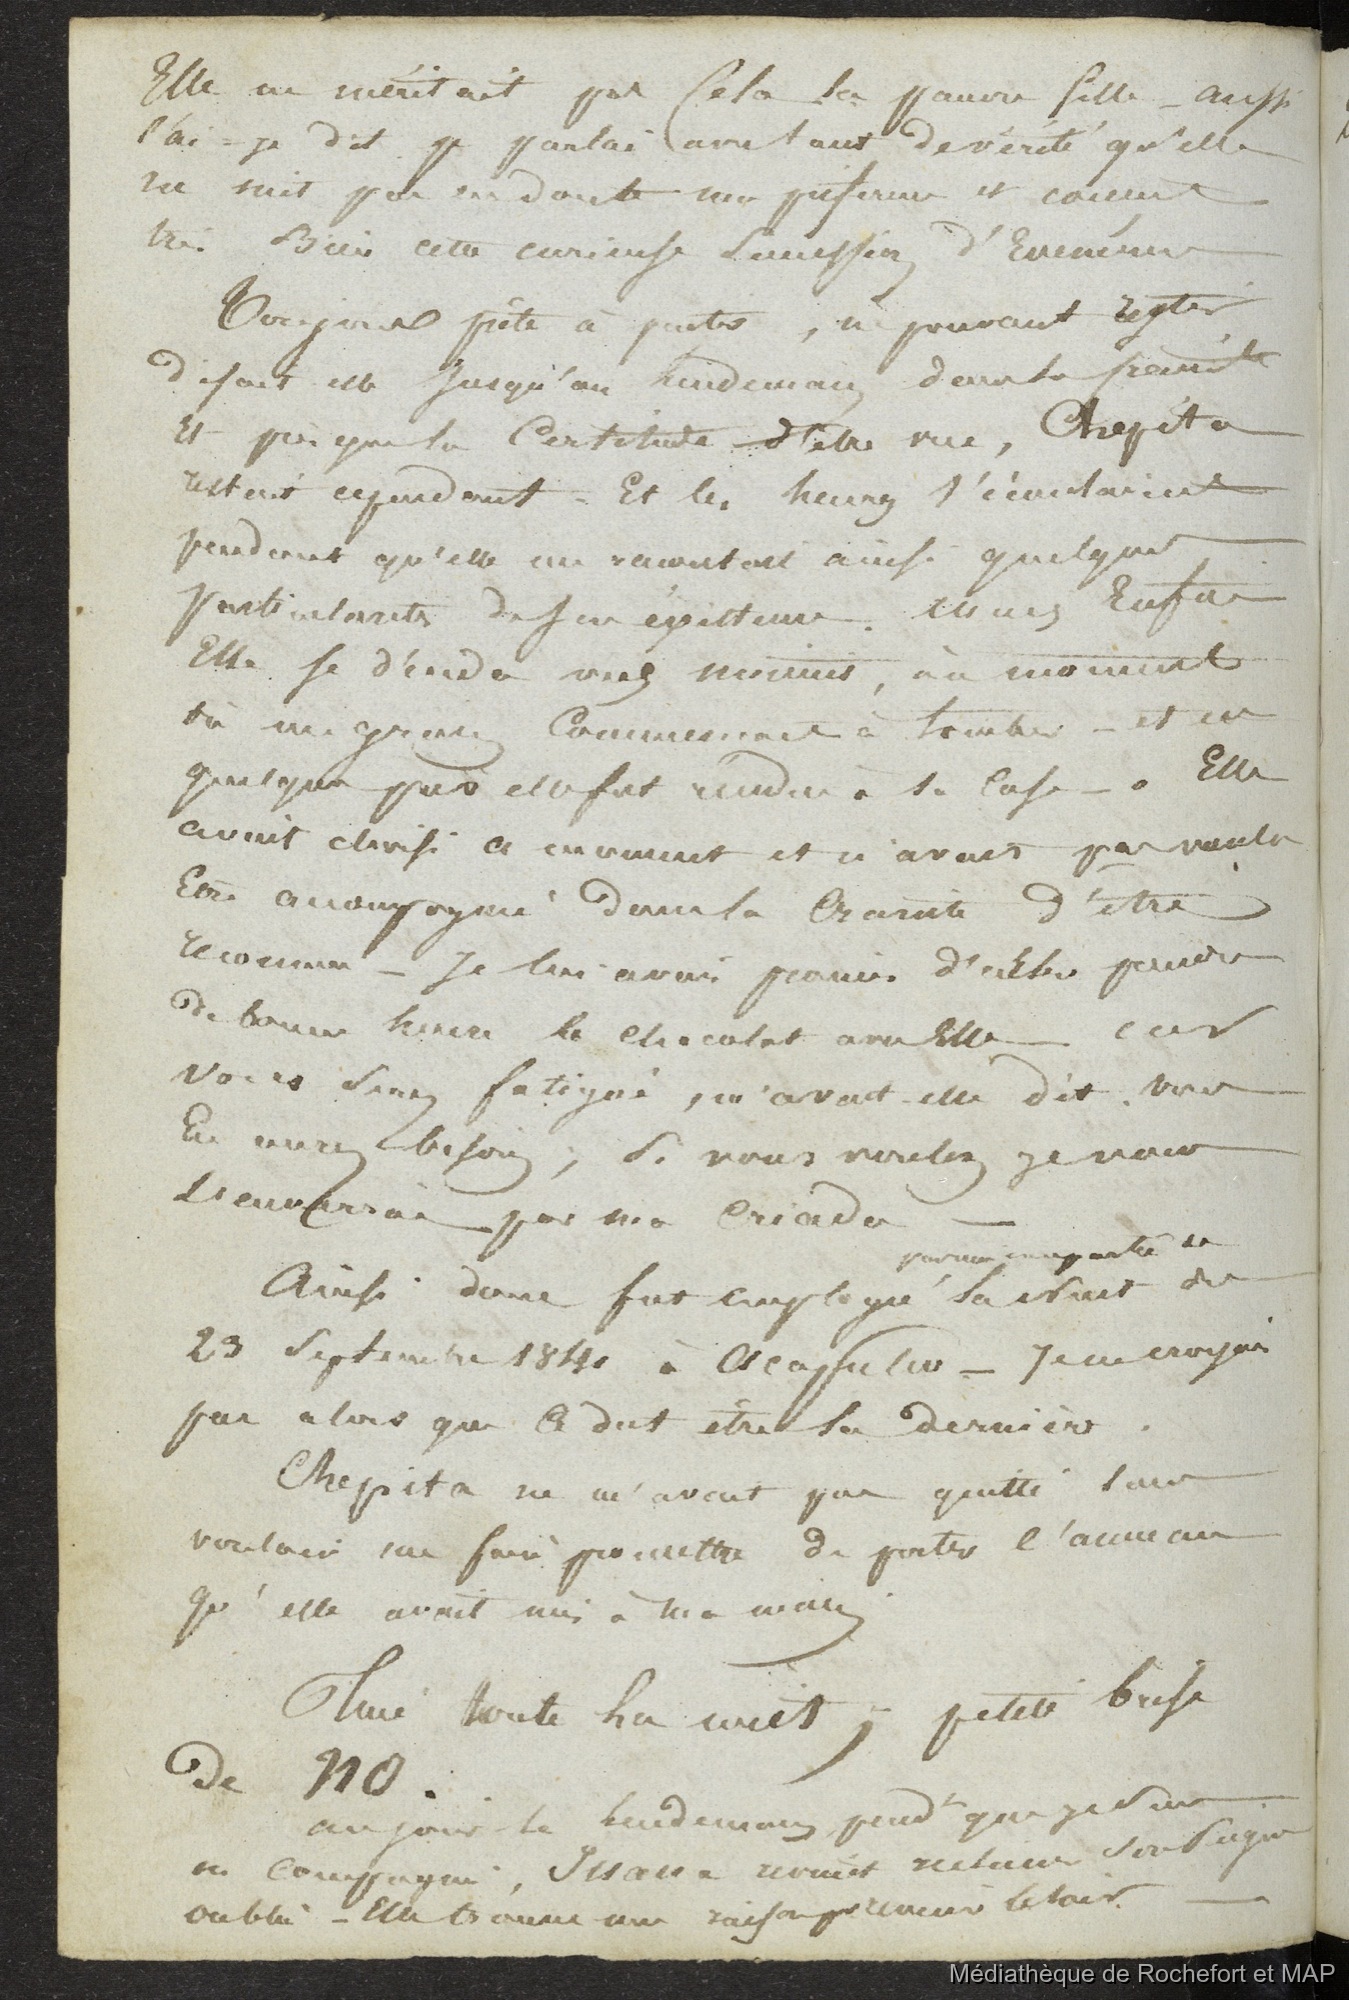 Elle ne méritait pas Cela la pauvre fille - aussi
l'ai-je dit je parlai avec tant de vérité qu'elle
ne mit pas en doute ma et
très Bien cette curieuse Succession d'Evenemens
Toujours prête à partir, ne pouvant rester
disait elle Jusqu'au lendemain dans la
Et presque la Certitude d'être vue, Chepita
restait cependant - Et les heures s'écoulaient
pendant qu'elle me racontait ainsi quelques
particularités de son existence. Mais Enfin
Elle se décida vers minuit, au moment
où un grain Commencait à tomber - et en
quelques pas elle fut rendue à sa Case - . Elle
avait choisi ce moment et n'avait pas voulu
Etre accompagné dans la Crainte d'être
reconnue - Je lui avais promis d'aller prendre
de bonne heure le chocolat avec Elle - car
vous Serez fatigué, m'avait-elle dit. vous
En aurez besoin, Si vous voulez je vous
l'enverrai par ma Criada -
Ainsi donc fut employé la Nuit du
par moi une partie de
23 Septembre 1841 à Acapulco - Je ne croyais
pas alors que Ce dut être la dernière.
Chepita ne m'avait pas quitté sans
vouloir me faire promettre de porter l'anneau
qu'elle avait mis à ma main
toute la nuit ; petite brise
de NO.
au jour le lendemain pend^t que je suis
en Compagnie, revient
oublié - Elle trouve une raison p^r revenir le soir -
Médiathèque de Rochefort et MAP